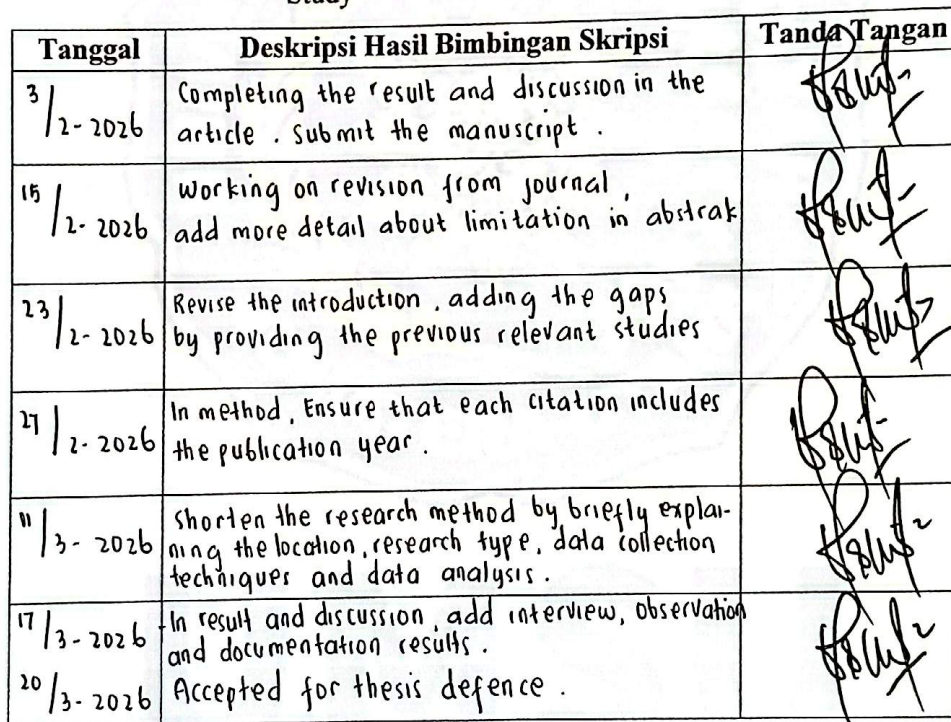 Study
Tanggal Deskripsi Hasil Bimbingan Skripsi Tanda Tangan
3/2-2026 Completing the result and discussion in the
article. Submit the manuscript.
15/2-2026 Working on revision from journal,
add more detail about limitation in abstrak
23/2-2026 Revise the introduction, adding the gaps
by providing the previous relevant studies
27/2-2026 In method, Ensure that each citation includes
the publication year.
11/3-2026 Shorten the research method by briefly explai-
ning the location, research type, data collection
techniques and data analysis.
17/3-2026 In result and discussion, add interview, observation
and documentation results.
20/3-2026 Accepted for thesis defence.